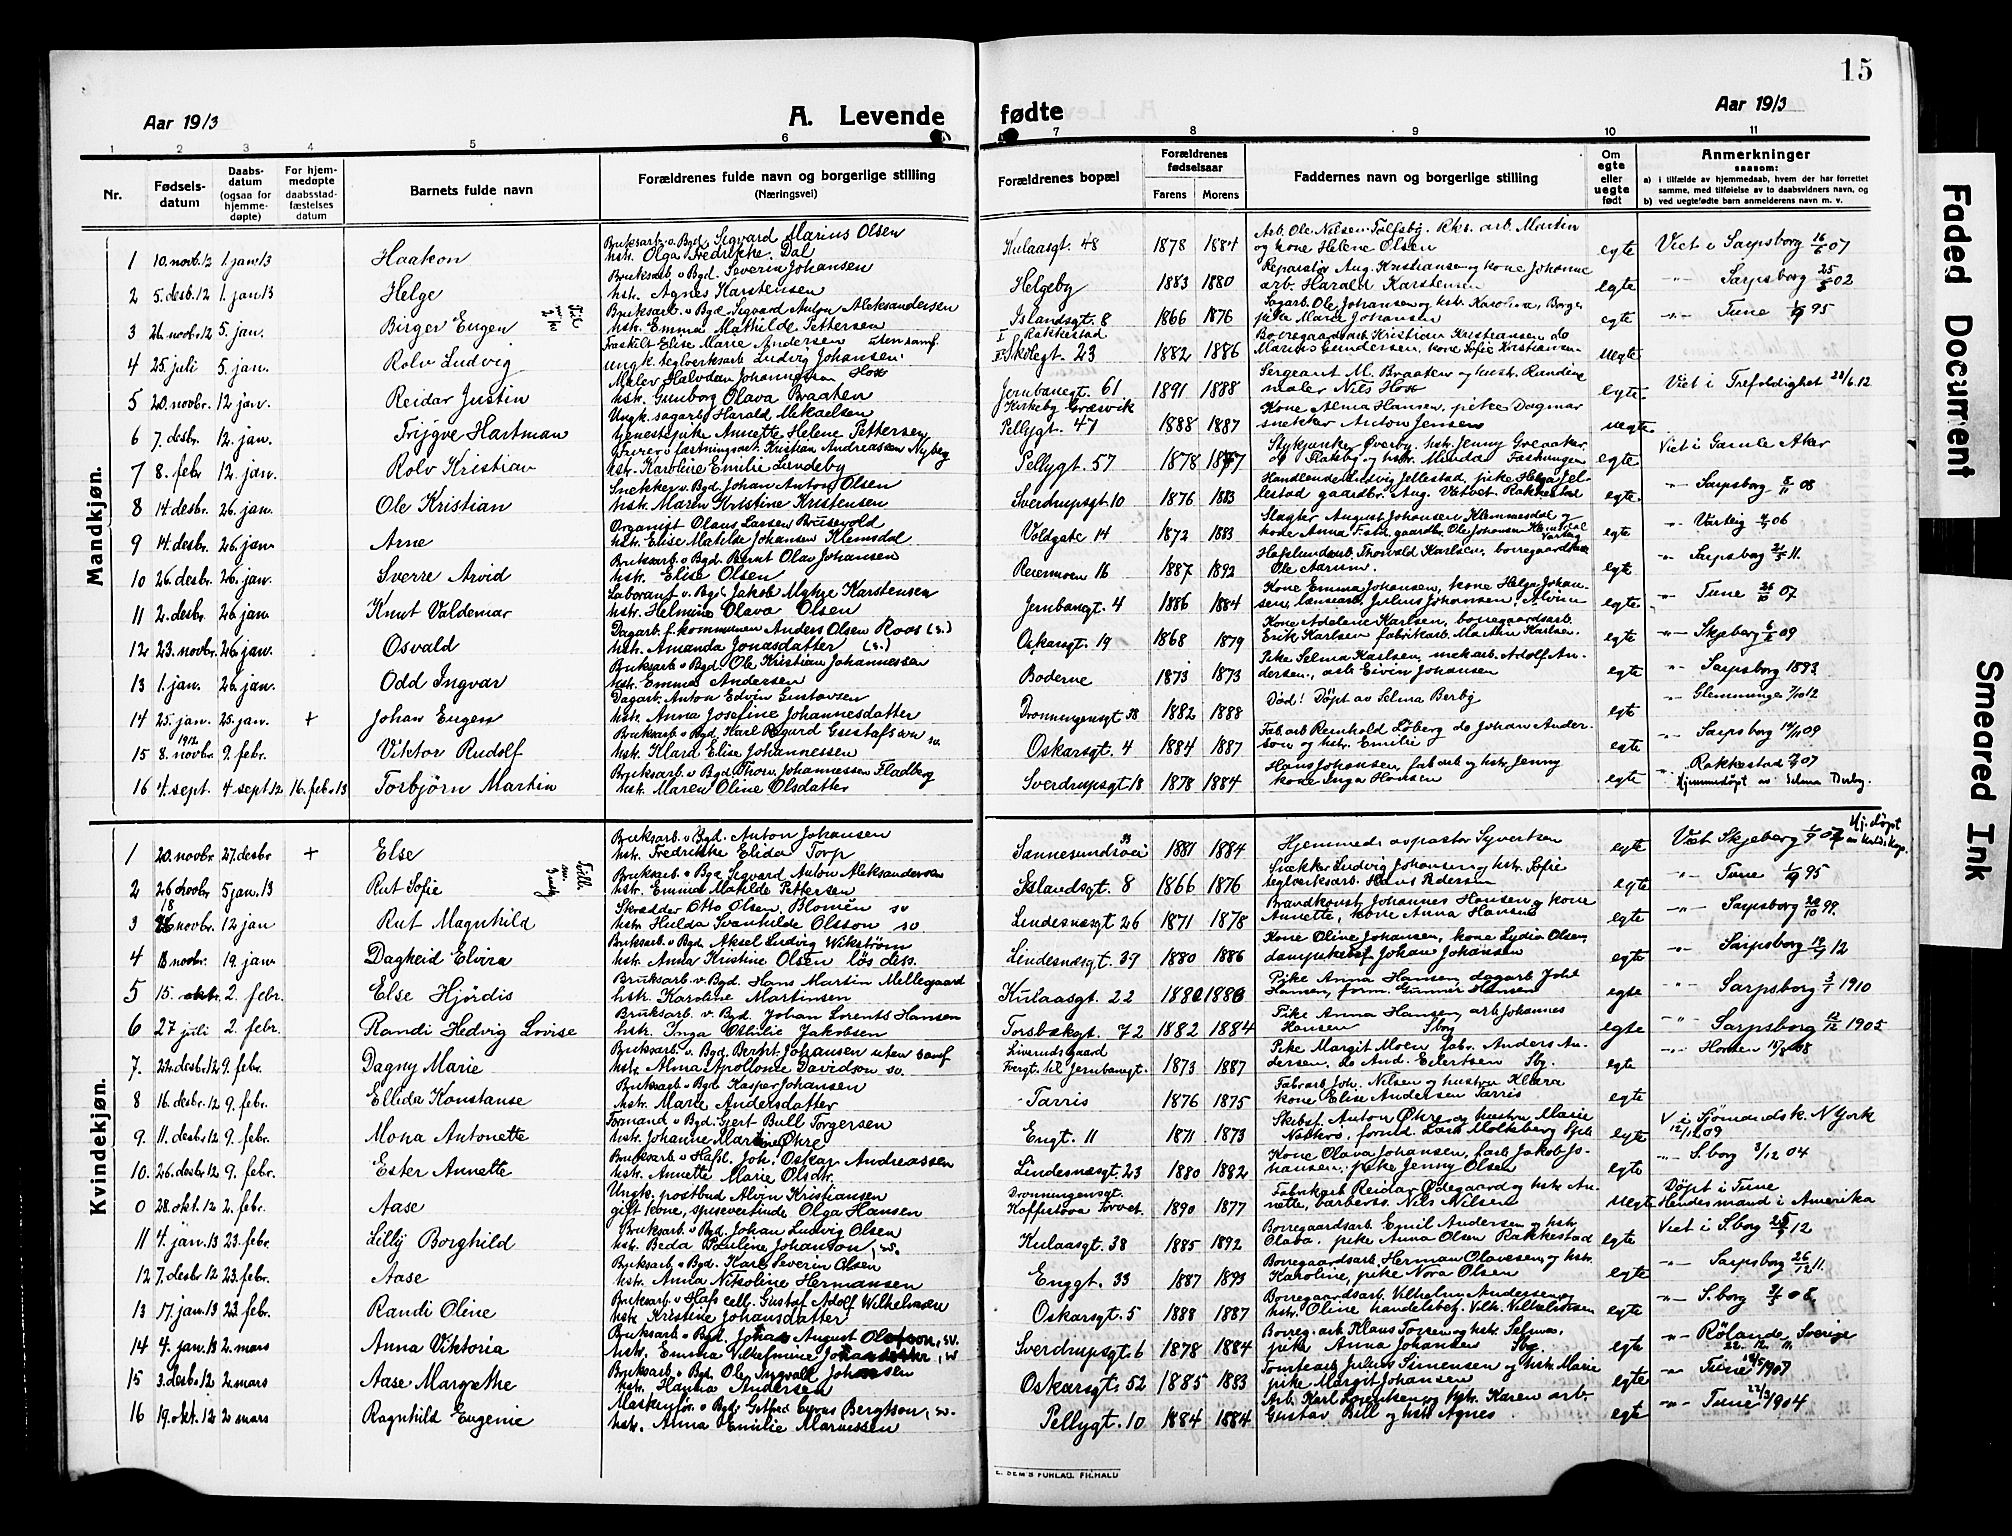 15
Aar 1913
A. Levende fødte
Aar 1913
1 2 3 4 5 6 7 8 9 10 11
Nr.
Fødsels-datum
Daabs-datum (ogsaa for hjemme-døpte)
For hjem-medøpte daabsstad-fæstelses datum
Barnets fulde navn
Forældrenes fulde navn og borgerlige stilling (Næringsvei)
Forældrenes bopæl
Forældrenes fødselsaar
Farens Morens
Faddernes navn og borgerlige stilling
Om egte eller uegte født
Anmerkninger
saasom:
a) i tilfælde av hjemmedaab, hvem der har forrettet samme, med tilføielse av to daabsvidners navn, og
b) ved uegtefødte barn anmelderens navn m. v.
Mandkjøn.
1 10. novb. 12 1 jan 13 Haakon Bruksarb. v. Bgd. Sigvard Marius Olsen hstr. Olga Fredrikke Dal Kulaasgt. 48 1878 1884 Arb. Ole Nilsen arb. Martin og kone Helene Olsen egte Viet i Sarpsborg 16/6 07
2 5. desb. 12 1. jan 13 Helge Bruksarb v Bgd. Severin Johansen hstr. Agnes Karstensen Helgeby 1883 1880 Reparatør Aug. Kristiansen og kone Johanne arb. Harald Karstensen egte -"- Sarpsborg 25/5 02
3 26. novbr 12 5. jan. Birger Eugen Bruksarb v Bgd Sigvard Anton Aleksandersen hstr. Emma Mathilde Pettersen Islandsgt. 8 1866 1876 Sagarb. Ole Johansen og hstr. Karoline, Borge pike Marie Johansen egte -"- Tune 1/9 95
4 25. juli 5. jan. Rolv Ludvig Fraskilt Elise Marie Andersen uten samf ungk. teglverksarb Ludvig Johansen I Rakkestad II Skolegt. 23 1882 1886 Borregaardsarb Kristian Kristiansen do Marius Gundersen, kone Sofie Kristiansen uegte
5 20. novbr. 12 jan. Reidar Justin Maler Halvdan Johannesen Hox hstr. Gunborg Olava Braaten Jernbanegt. 61 1891 1888 Sergeant M. Braaten og hustr. Randine maler Nils Hox egte Viet i Trefoldighet 28/6.12
6 7. desbr. 12. jan. Trygve Hartman Ungk. sagarb Harald Mikaelsen tjenestepike Annette Helene Pettersen Kirkeby Græsvik Pellygt. 47 1888 1887 Kone Alma Hansen, pike Dagmar snekker Anton Jensen uegte
7 8. febr 12. jan. Rolv Kristian Kristian Andreassen Nyberg hstr. Karoline Emilie Lundeby Pellygt. 57 1878 1877 Stykjunker Øverby, hstr. Jenny Greaaker egte Viet i Gamle Aker
8 14 desbr. 26. jan. Ole Kristian Snekker v. Bgd. Johan Anton Olsen hstr. Maren Kristine Kristensen Sverdrupsgt. 10 1876 1883 Handlende Ludvig Jellestad, pike Helga Jellestad gaardbr. Aug. Rakkestad egte -"- Sarpsborg 8/11 08
9 14. desbr. 26. jan Arne Organist Olaus Larsen Brusevold hstr. Elise Matilde Johansen Klemsdal Voldgate 14 1872 1883 Slagter August Johansen Klemmesdal og kone Anna gaardbr. Ole Johansen Klemsdal egte -"- Varteig 06
10 26. desbr. 26. jan. Sverre Arvid Bruksarb v. Bgd Bernt Olav Johansen hstr. Elise Olsen Reiermoen 16 1887 1892 Hafslundarb. Thorvald Karlsen, Ole Aarum. egte -"- Sarpsborg 11.
11 2. desbr. 26. jan. Knut Valdemar Laborant v. Bgd. Jakob Karstensen hstr. Helmine Olava Olsen Jernbangt. 4 1886 1884 Kone Emma Johansen, kone Helga Johansen, Julius Johansen, Alvin egte -"- Tune 26/10 07
12 23. novbr. 26. jan. Osvald Dagarb. f. kommunen Anders Olsen Roos (s.) hstr. Amanda Jonasdatter (s.) Oskarsgt. 19 1868 1879 Kone Adolene Karlsen, borregaardsarb. Erik Karlsen fabrikarb. Martin Karlsen. egte -"- Skjeberg 6/6 09
13 1. jan. 26. jan. Odd Ingvar Bruksarb v Bgd Ole Kristian Johannessen hstr. Emma Andersen Boderne 1873 1873 Pike Selma Karlsen, mekarb. Adolf Andersen, Eivin Johansen egte -"- Sarpsborg 1893
14 25. jan. 25. jan. + Johan Eugen Dagarb. Anton Edvin Gustavsen hstr. Anna Josefine Johannesdatter Dronningensgt 38 1882 1888 Død! Døpt av Selma Berby egte -"- Glemminge 7/10 12
15 1912 8. novbr. 9. febr. Viktor Rudolf Bruksarb. v Bgd. Karl Rgard Gustafsson sv. hstr. Klara Elise Johannessen Oskarsgt. 4 1884 1887 Fab. arb Reinhold Løberg do Johan Anderson og hstr. Emilie egte -"- Sarpsborg 09
16 4. sept. 4 sept 12 16. febr. 13 Torbjörn Martin Bruksarb. v Bgd Thorv. Johannessen Fladberg hstr. Maren Oline Olsdatter Sverdrupsgt 18 1878 1884 Hans Johansen, fabarb og hstr. Jenny kone Inga Hansen egte -"- Rakkestad 07 Hjemmedøpt av Selma Berby.
Kvindekjøn.
1 20. novbr 27. desbr + Else Bruksarb. v Bgd. Anton Johansen hstr. Fredrikke Elida Torp Sannesundsvei 33 1881 1884 Hjemmed. av pastor Syvertsen egte Viet Skjeberg 1/9 07 Hj. døpt
2 26 novbr 5 jan. 13 Rut Sofie Bruksarb. v Bgd Sigvard Anton Aleksandersen hstr. Emma Matilde Pettersen Islandsgt. 8 1866 1876 Snekker Ludvig Johansen og hstr. Sofie teglverksarb. Hans Pedersen egte -"- Tune 1/9 95
3 18 novbr. 12 jan Rut Magnhild Skrædder Otto Olsen Blomén sv hstr Hulda Svanhilde Olsson sv Lindesnæsgt 26 1871 1878 Brandkonst Johannes Hansen og kone Annette, kone Anna Hansen egte -"- Sarpsborg 22/10 99.
4 18 novbr. 19. jan Dagheid Elvira Bruksarb. v. Bgd Aksel Ludvig Wikström hstr. Anna Kristine Olsen løs diss. Lindesnæsgt. 39 1880 1886 Kone Oline Johansen, kone Lydia Olsen, Johan Johansen egte -"- Sarpsborg 12
5 15. oktbr. 2. febr. Else Hjördis Bruksarb. v. Bgd. Hans Martin Mellegaard hstr. Karoline Martinsen Kulaasgt. 22 1880 1886 Pike Anna Hansen, dagarb. Joh. Hansen, form. Gunner Hansen egte -"- Sarpsborg 3/7 1910
6 27 juli 2. febr. Randi Hedvig Lovise Bruksarb. v. Bgd. Johan Lorents Hansen hstr. Inga Othilie Jakobsen Torsbækgt. 72 1882 1884 Pike Anna Hansen, arb Johannes Hansen Sbg egte -"- Sarpsborg 12/12 1905
7. 22. desbr. 12 9. febr. Dagny Marie Bruksarb. v. Bgd. Bernt Johansen uten samf hstr. Alma Apollonie Davidson sv. Liverudsgaard Tvergt. til Jernbanegt. 1873 1887 Pike Margit Moen fabr. Anders Andersen, do And. Eilertsen Sbg. egte -"- Horten 08
8 16. desbr. 12 9. febr. Ellida Konstanse Bruksarb. v Bgd Kasper Johansen hstr. Marie Andersdatter Tarris 1876 1875 Fabrarb Joh. Nilsen og hustrun Klara kone Elise Andersen Tarris egte
9. 11. desbr 12 9. febr. Mona Antonette Formand v. Bgd. Gjert Bull Torgersen hstr. Johanne Martine Øhre Engt. 11 1871 1873 Skibst. Anton Øhre og hustru Marie formd. Lars Molteberg egte V. i Sjömandsk. N York 12/12 09
10. 26. desbr 12 9. febr. Ester Annette Bruksarb. v Hafsl. Joh. Oskar Andreassen hstr. Annette Marie Olsdtr. Lindesnæsgt. 23 1880 1882 Kone Olava Johansen, farb Jakob Johansen, pike Jenny Olsen egte -"- S. borg 3/12 04
0 28. okt. 12 2. febr. Aase Ungk. postbud Alvin Kristiansen gift kone, spisevertinde Olga Hansen Dronningensgt. Kaffestova Torvet. 1890 1877 Fabrikarb Reidar Ødegaard og hstr Annette, barberss. Nils Nilsen uegte Døpt i Tune Hendes mand i Amerika
11 4. jan. 13 23. febr. Lilly Borghild Bruksarb. v Bgd. Johan Ludvig Olsen hstr. Beda Pauline Johanson, sv. Kulaasgt. 38 1885 1892 Borregaardsarb. Emil Andersen og hstr. Olava, pike Anna Olsen Rakkestad egte Viet i S. borg 12
12 7. desbr 12 23. febr. Aase Bruksarb. v Bgd. Karl Severin Olsen hstr. Anna Nikoline Hermansen Enggt. 33 1887 1893 Borregaardsarb. Herman Olavesen og hstr. Karoline, pike Nora Olsen egte -"- Sarpsborg 26/12 11.
13 17 jan. 13 23 febr. Randi Oline Bruksarb v Hafs cell. Gustaf Adolf Wilhelmsen hstr. Kristine Johansdatter Oskarsgt. 5 1888 1887 Borregaardsarb. Vilhelm Andersen og hstr. Oline handelsbetj. Vilh. Vilhelmsen egte -"- S. borg 08
14 4. jan. 13 2. mars Anna Viktoria Bruksarb. v Bgd. Johan August Olofsson, sv. hstr. Emma Vilhelmine, sv Sverdrupsgt. 6 1878 1884 Borreg. arb Klaus Torsen og hstr. Selma, pike Anna Johansen Sbg. egte -"- Rölanda, Sverige 22. 12. 11.
15 3. desbr 12 2. mars Aase Margrethe Bruksarb. v Bgd. Ole Ingvald Johansen hstr. Hanna Andersen Oskarsgt. 52 1885 1883 Tomtearb Julius Simensen og hstr Marie pike Margit Johansen egte -"- Tune 1907
16 19. okt. 12 2 mars Ragnhild Eugenie Maskinfør. v Bgd. Gotfred Cyrus Bergtson, sv. hstr. Anna Emilie Marsussen Pellygt. 10 1884 1884 Arb. Karl Lorentsen og hstr. Karen arb. Gustav Bill og hstr Agnes egte -"- Tune 1904
E. SEM'S FORLAG, FR.HALD
Faded Document
Smeared Ink